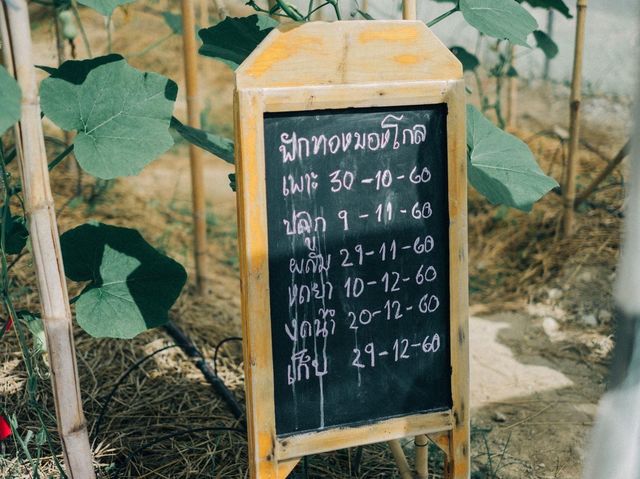 ฟักทองมองโกล
เพาะ 30-10-60
ปลูก 9-11-60
ผสม 29-11-60
งดยา 10-12-60
งดน้ำ 20-12-60
เก็บ 29-12-60